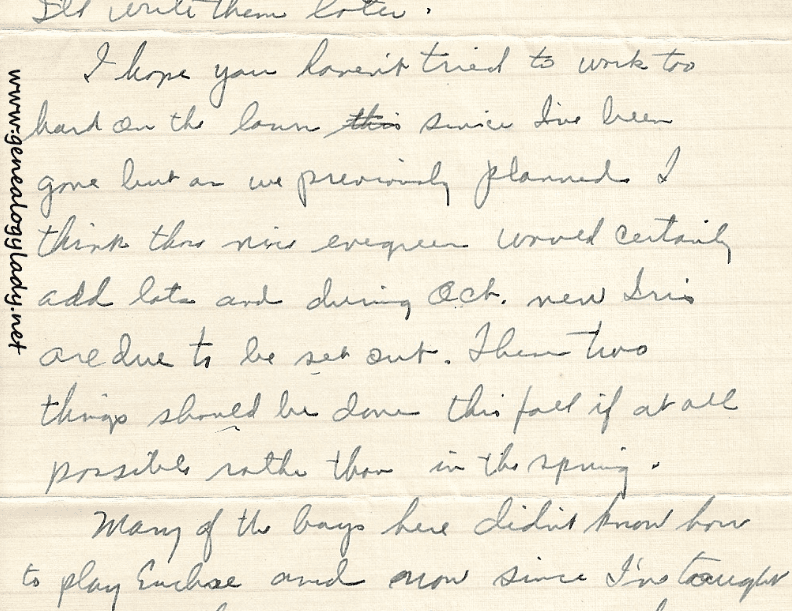 I'll write them later.
I hope you haven't tried to work too
hard on the lawn this since I've been
gone but as we previously planned I
think those nine evergreen would certainly
add lots and during Oct. new Iris
are due to be set out. These two
things should be done this fall if at all
possible rathe than in the spring.
Many of the boys here didn't know how
to play Euchre and now since I've taught
www.genealogylady.net